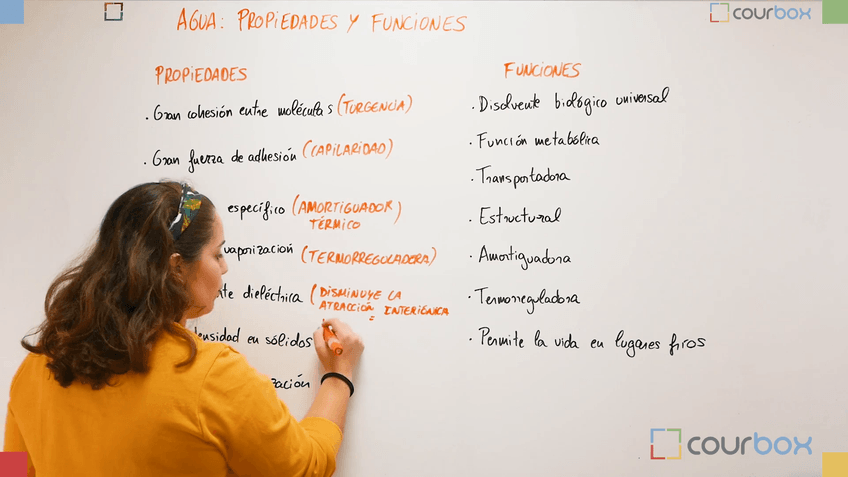 AGUA: PROPIEDADES Y FUNCIONES
courbox
PROPIEDADES
. Gran cohesión entre moléculas (TURGENCIA)
. Gran fuerza de adhesión (CAPILARIDAD)
específico (AMORTIGUADOR
TÉRMICO)
vaporización (TERMORREGULADORA)
dieléctrica (DISMINUYE LA
ATRACCIÓN INTERIÓNICA
=
densidad en sólidos
FUNCIONES
. Disolvente biológico universal
. Función metabólica
. Transportadora
. Estructural
. Amortiguadora
. Termorreguladora
. Permite la vida en lugares fíros
courbox